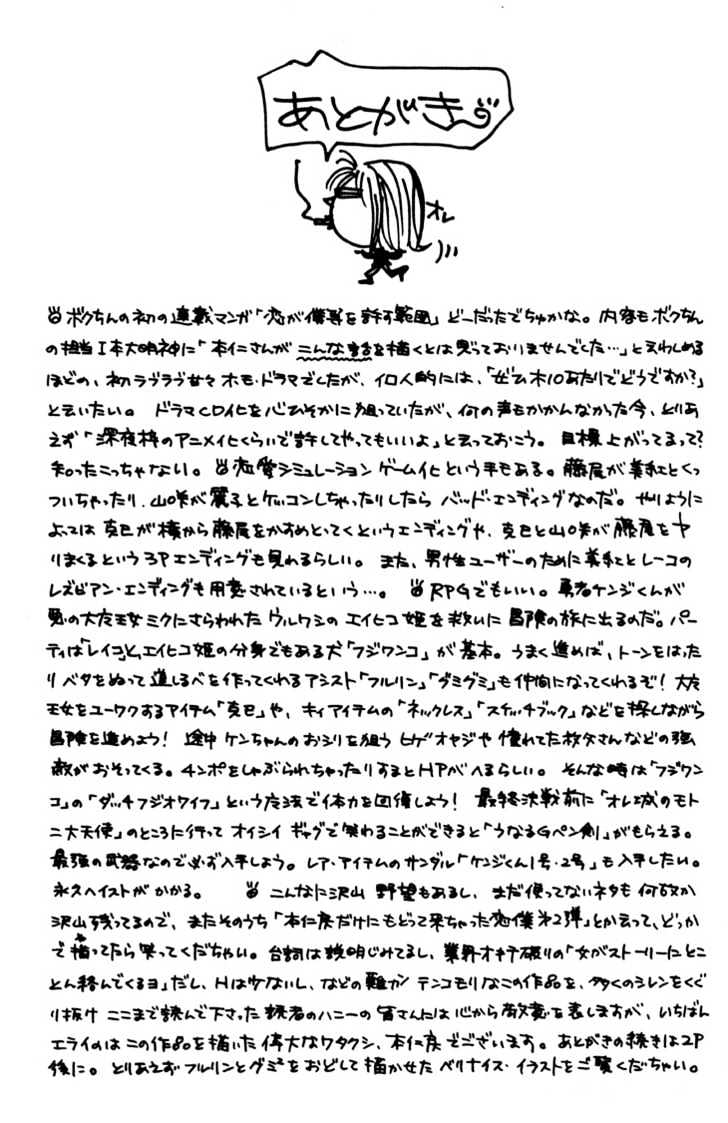 あとがき
オレ
ボクちんの初の連載マンガ「恋が僕等を許す範囲」どーだったでちゃかな。内容もボクちん
の担当I本大明神に「本仁さんがこんなまるを描くとは思っておりませんでした…」と云わしめる
ほどの、初ラヴラヴ甘々ホモ・ドラマでしたが、イロ人的には、「ぜひ木10あたりでどうですか?」
と云いたい。ドラマCD化を心ひそかに狙っていたが、何の声もかかんなかった今、とりあ
えず「深夜枠のアニメ化くらいで許してやってもいいよ」と云っておこう。目標上がってるって?
知ったこっちゃない。恋愛シミュレーションゲーム化という手もある。藤尾が美紅とくっ
ついちゃったり、山咲が麗子とケッコンしちゃったりしたらバッド・エンディングなのだ。やりように
よっては克巳が横から藤尾をかすめとってくというエンディングや、克巳と山咲が藤尾をヤ
りまくるという3Pエンディングも見れるらしい。また、男性ユーザーのために美紅とレーコの
レズビアン・エンディングも用意されているという…。RPGでもいい。勇者ケンジくんが
悪の大女王ミクにさらわれたウルワシのエイヒコ姫を救いに冒険の旅に出るのだ。パー
ティは「レイコ」と、エイヒコ姫の分身でもある犬「フジワンコ」が基本。うまく進めば、トーンをはった
りベタをぬって道しるべを作ってくれるアシスト「フルリン」「グミグミ」も仲間になってくれるぞ!大
王女をユーワクするアイテム「克巳」や、キィアイテムの「ネックレス」「スケッチブック」などを探しながら
冒険を進めよう!途中ケンちゃんのおシリを狙うヒゲオヤジや憧れてた枚タさんなどの強
敵がおそってくる。チンポをしゃぶられちゃったりするとHPがへるらしい。そんな時は「フジワン
コ」の「ダッチフジオワイフ」という方法で体力を回復しよう!最終決戦前に「オレ城のモト
ニ大天使」のところに行ってオイシイギャグで笑わることができると「うなるGペン剣」がもらえる。
最強の武器なので必ず入手しよう。レア・アイテムのサンダル「ケンジくん1号・2号」も入手したい。
永久ヘイストがかかる。こんなに沢山野望もあるし、まだ使ってないネタも何故か
沢山残ってるので、またそのうち「本仁戻だけにもどって来ちゃった恋僕第2弾」とか云って、どっか
で描ってたら笑ってくだちゃい。台詞は説明じみてるし、業界オキテ破りの「女がストーリーにとこ
とん絡んでくるヨ」だし、Hは少ないし、などの難がテンコモリなこの作品を、多くのシレンをくぐ
り抜けここまで読んで下さった読者のハニーの皆さんには心から敬意を表しますが、いちばん
エライのはこの作品を描いた偉大なワタクシ、本仁戻でございます。あとがきの続きは2P
後に。とりあえずフルリンとグミ2をおどして描かせたベリナイス・イラストをご覧くだちゃい。